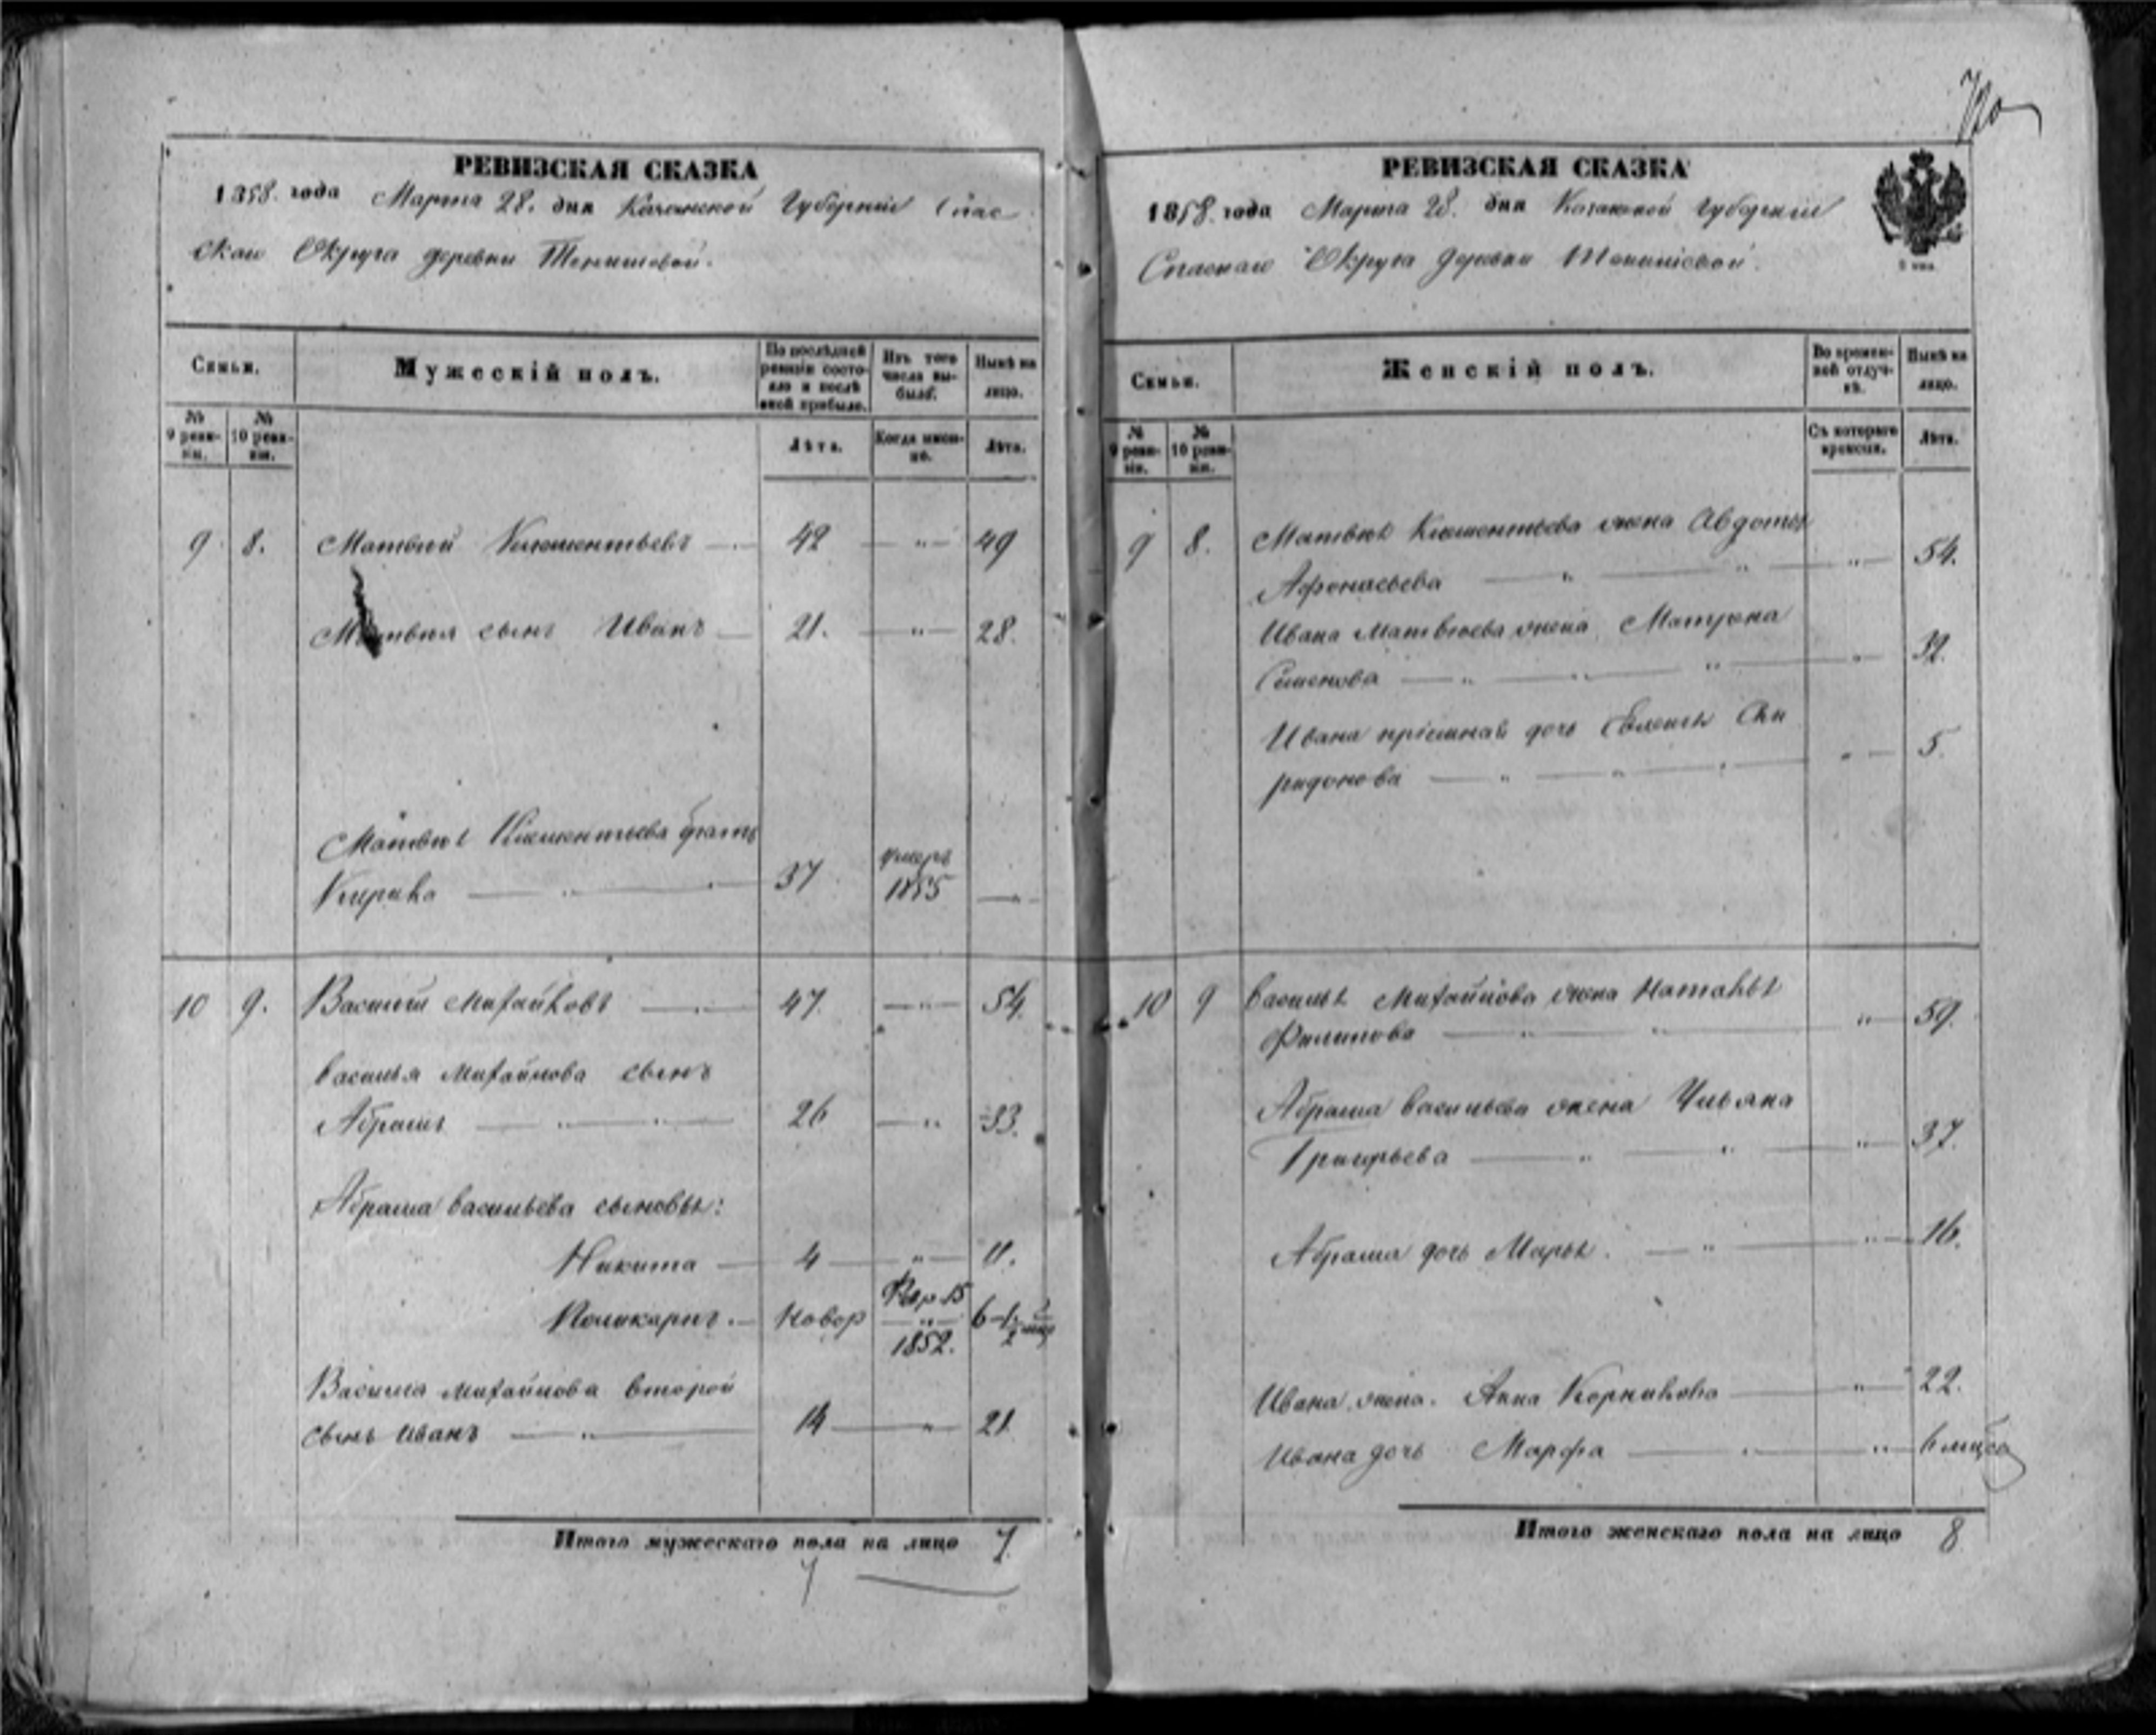 РЕВИЗСКАЯ СКАЗКА
1858. года Марта 28. дня Казанской Губернии Спас
скаго Округа деревни Тенишевой.
Семьи.
Мужескій полъ.
По послѣдней ревизіи состояло и послѣ оной прибыло.
Изъ того числа выбыло.
Нынѣ на лицо.
№ 9 ревизіи.
№ 10 ревизіи.
Лѣта.
Когда именно.
Лѣта.
9 8. Матвей Климентьевъ 42 — " — 49
Матвея сынъ Иванъ 21. — " — 28.
Матвея Климентьева братъ
умеръ
37 1855 —
10 9. Василий Михайловъ 47. — " — 54.
Василья Михайлова сынъ
Абрамъ 26 — " 33.
Абрама Васильева сыновья:
Никита — 4 — " — 11.
Поликарпъ. — Новор
1852.
Василья Михайлова второй
сынъ Иванъ — " — 14 — " — 21
Итого мужескаго пола на лицо 7.
7
РЕВИЗСКАЯ СКАЗКА
1858. года Марта 28. дня Казанской Губернии
Спаскаго Округа деревни Тенишевой.
Семьи.
Женскій полъ.
Во временной отлучкѣ.
Нынѣ на лицо.
№ 9 ревизіи.
№ 10 ревизіи.
Съ котораго времени.
Лѣта.
9 8. Матвея Климентьева жена Авдотья
Афонасьева — " — " — " — 54.
Ивана Матвеева жена Матрена
Семенова — " — " — " — " — 32.
Ивана пріемная дочь Спи
ридонова — " — " — " — 5.
10 9 Василья Михайлова жена Наталья
Филипова — " — " — " — 59.
Абрама Васильева жена Ульяна
Григорьева — " — " — " — 37.
Абрама дочь Марья. — " — " — 16.
Ивана жена. Анна — " — 22.
Ивана дочь Марфа — " — " — 6
Итого женскаго пола на лицо 8